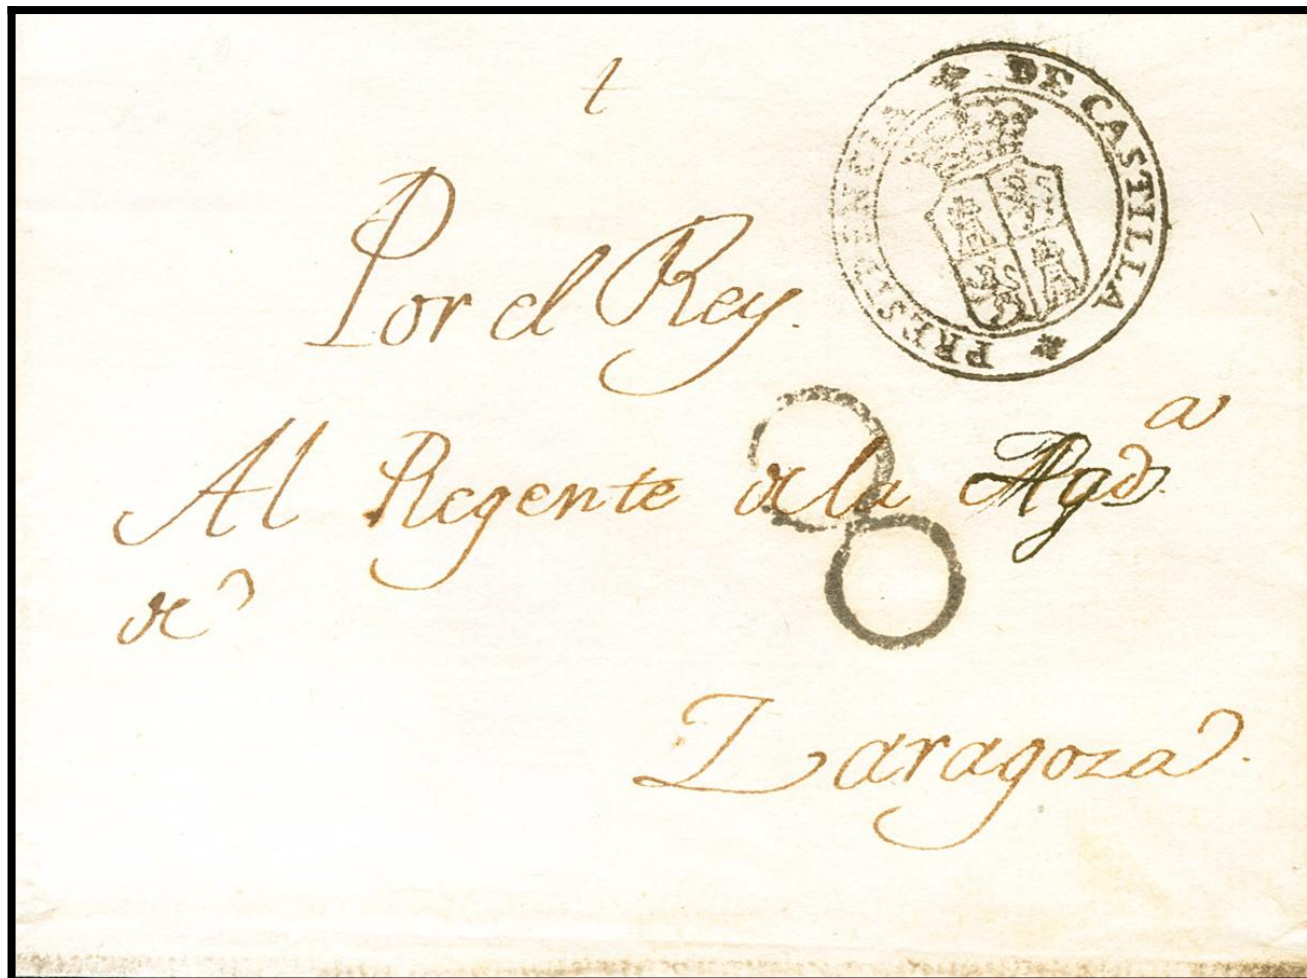 PRESIDENCIA * DE CASTILLA *
Por el Rey.
Al Regente de la
de
Zaragoza.